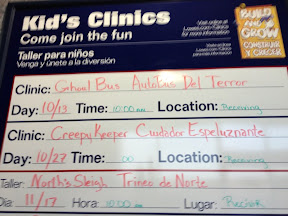 Kid's Clinics
Come join the fun
Taller para niños
Venga y únete a la diversión
Visit online at
Lowes.com/Clinics
for more information
BUILD
AND
GROW
CONSTRUIR
Y CRECER
Clinic: Gehoul Bus Autobus Del Terror
Day: 10/13 Time: 10:00 am Location: Receiving
Clinic: Creepy Keeper Cuidador Espeluznante
Day: 10/27 Time: :00 Location: Receiving
Taller: North's Sleigh Trineo de Norte
Día: 11/17 Hora: 10:00 am Lugar: